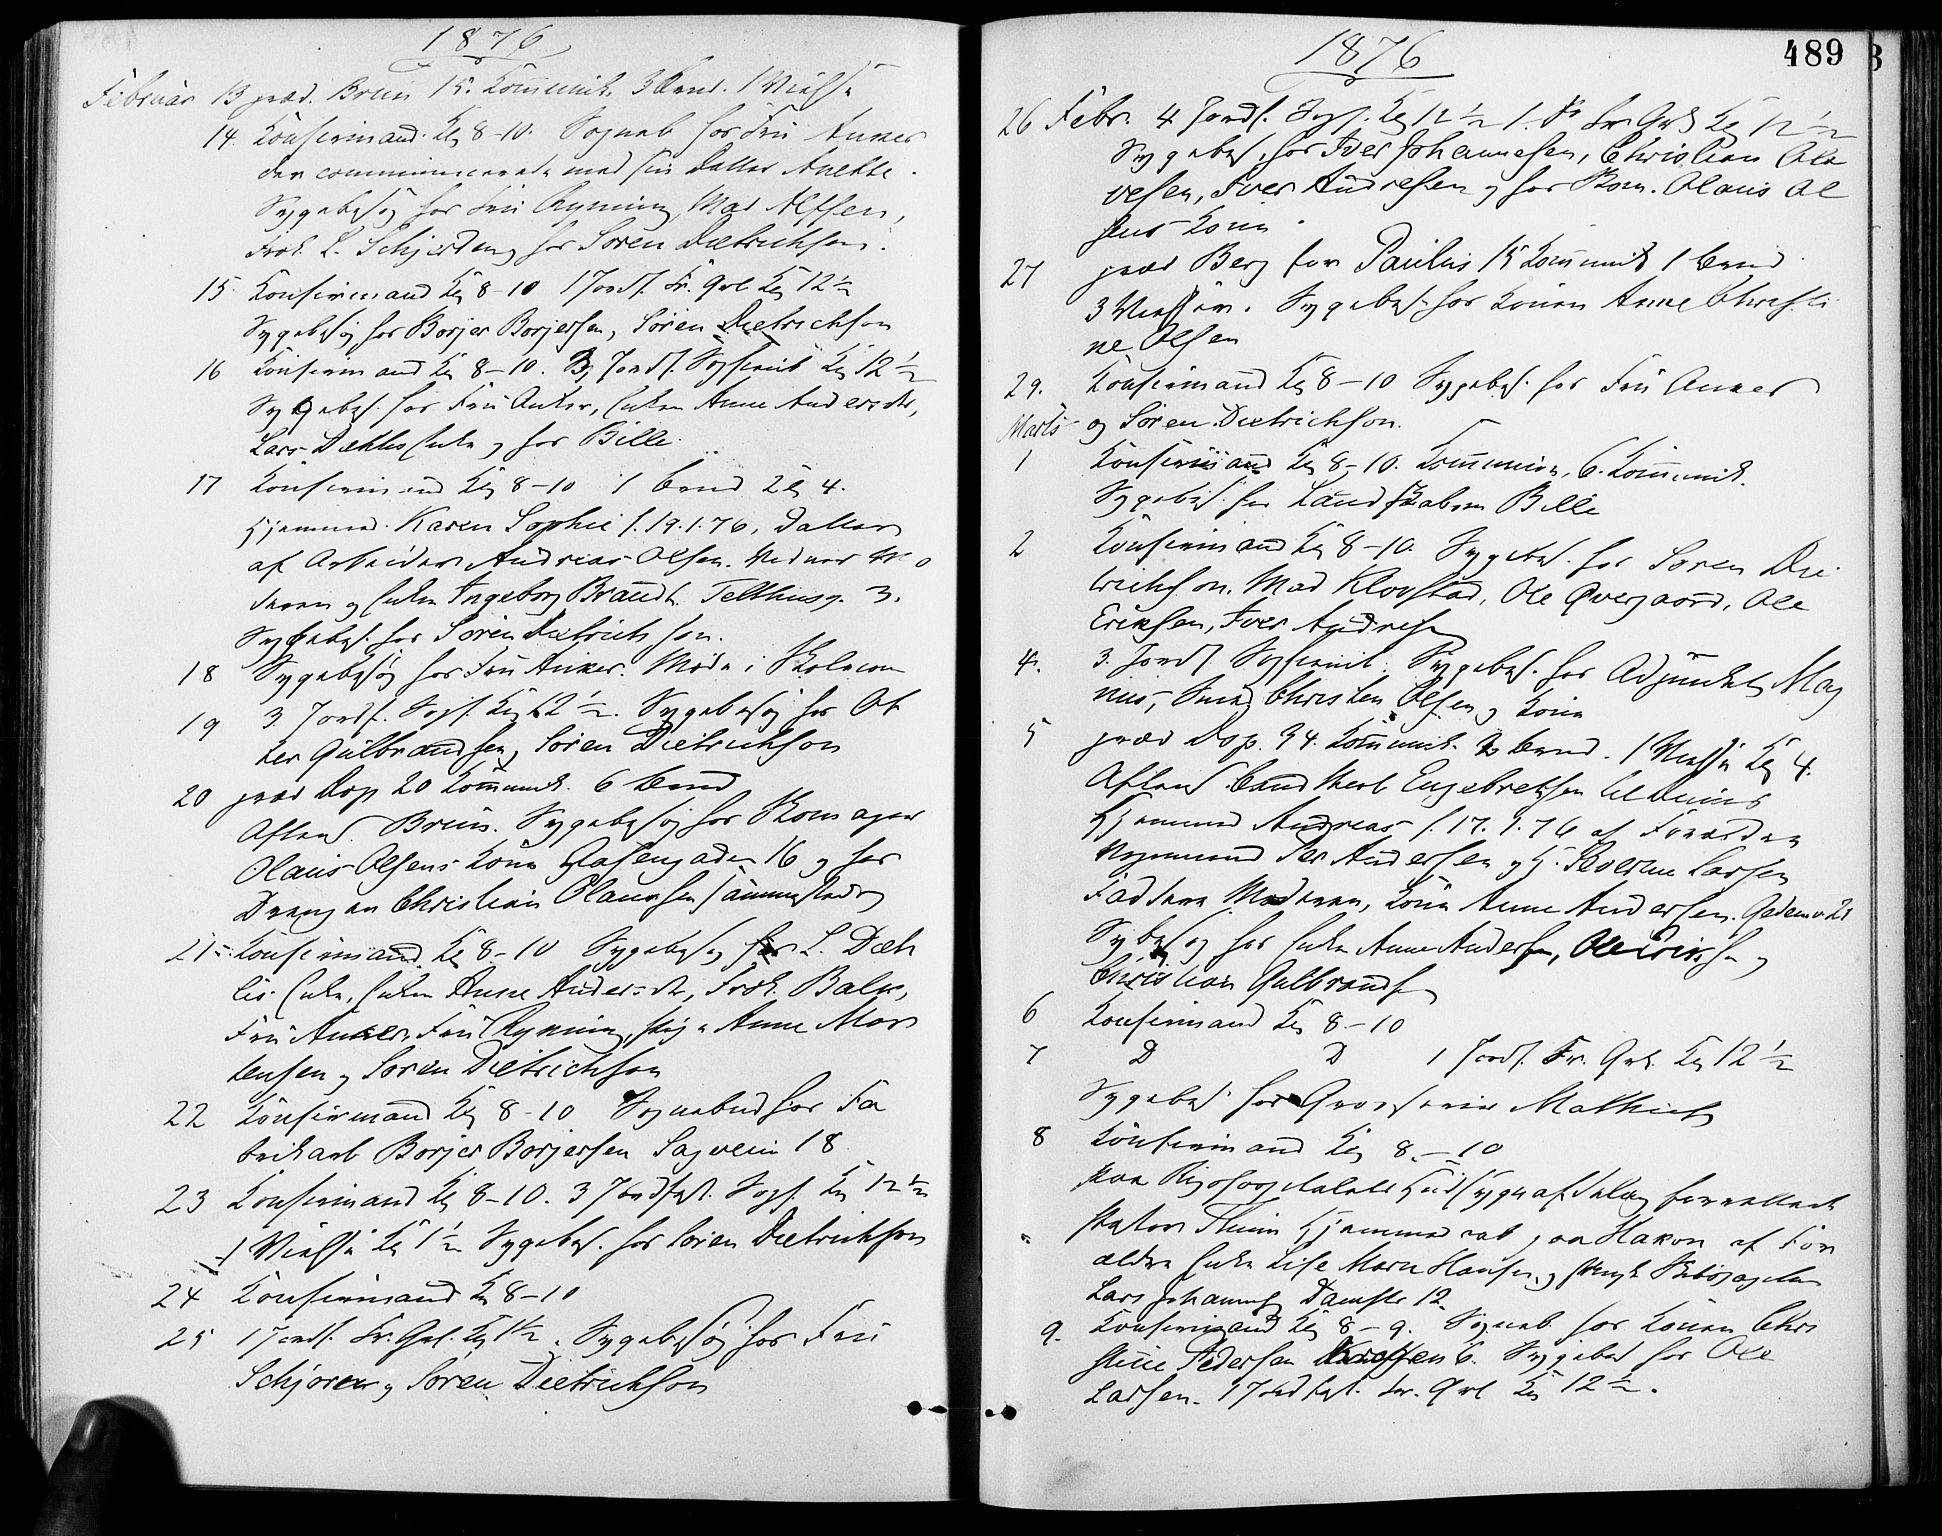 1876
Februar 13 præd. Bruun 15. Kommunik. 3 Barnd. 1 Vielse
14. Konfirmand. Kl 8-10. Sogneb for Fru Anker
der communicerede med sin Datter Anette.
Sygebesøg for Fru Rynning, Mad Alfsen,
Frøk. L. Schjerden, for Søren Dietrichson.
15 Konfirmand Kl 8-10 1 Jordf. Fr. Grl Kl 12½
Sygebesøg for Borjer Borjersen, Søren Dietrichson
16 Konfirmand Kl 8-10. 3 Jordf. Kl 12½
Sygebes. for Fru Anker, Enken Anne Andersdtr,
Lars Dæhlis Enke og for Bille.
17 Konfirmand Kl 8-10 1 Barnd Kl 4.
Hjemmed. Karen Sophie f. 19.1.76, Datter
af Arbeider Andreas Olsen.
og Enken Ingeborg Brandt. Telthusg. 3.
Sygebes. for Søren Dietrichson.
18 Sygebesøg for Fru Anker. Møde i Skolecom
19 3. Jordf. Kl 12½. Sygebesøg for
Gulbrandsen, Søren Dietrichson
20 præd Dop 20 Kommunik. 6 Barnd
Aftens Bruun. Sygebesøg for Skomager
Olaus Olsens Kone 16 og for
Drengen Christian Olaussen sammesteds
21 Konfirmand. Kl 8-10 Sygebesøg for L. Dæh
lis Enke, Enken Anne Andersdtr, Frøk. Balke,
Fru Anker, Fru Rynning, Pige Anne Mor
tensen og Søren Dietrichson
22 Konfirmand Kl 8-10 Sognebud for Fa
brikarb Borjer Borjersen Sagveien 18
23 Konfirmand Kl 8-10. 3 Jordfest. Kl 12½
1 Vielse Kl 1½ Sygebes. for Søren Dietrichson
24 Konfirmand Kl 8-10
25 1 Jordf. Fr. Grl. Kl 1½. Sygebesøg for Fru
Schjøren og Søren Dietrichson
1876
489
26 Febr. 4 Jordf. Kl 12½ 1. Fr. Grl Kl 12½
Sygebes. for Iver Johannesen, Christian Ola
vesen, Iver Andresen og for Skom. Olaus Ol
sens Kone.
27 præd Berg for Paulus 15 Kommunik 1 Barnd.
3 Vielser. Sygebes. for Konen Anne Christi
ne Olsen
29. Konfirmand Kl 8-10 Sygebes. for Fru Anker
Marts og Søren Dietrichson.
1 Konfirmand Kl 8-10. Kommunion, 6. Kommunik.
Sygebes. for Bille
2 Konfirmand Kl 8-10. Sygebes. for Søren Die
trichson. Mad Klovstad, Ole Qvergaard, Ole
Eriksen, Iver Andresen
4. 3. Jordf. Sygebes. for Adjunkt Mag
nus, Smed Christen Olsens Kone
5 præd Dop. 94. Kommunik. Barnd. 1 Vielse Kl 4.
Aftens Cand theol Engebretsen
Hjemmed Andreas f. 17. 1. 76 af Forældre
Per Andersen og H. Severine Larsen
Faddere Moderen, Kone Anne Andersen.
Sygbesøg for Enken Anne Andersen, Ole Eriksen og
Christian Gulbrandsen
6 Konfirmand Kl 8-10
7 D D 1 Jordf. Fr. Grl. Kl 12½
Sygebes. for Grosserer Mathiesen
8 Konfirmand Kl 8-10
paa Rigshospitalets forrettede
Hjemmed Haakon af For
ældre Enke Lise Marie Hansen og
Lars Johannesen Damstr 12.
9. Konfirmand Kl 8-9. Sogneb. for Konen Chri
stine Pedersen 6. Sygebes for Ole
Larsen. 1 Jordfest. Fr. Grl Kl 12½.